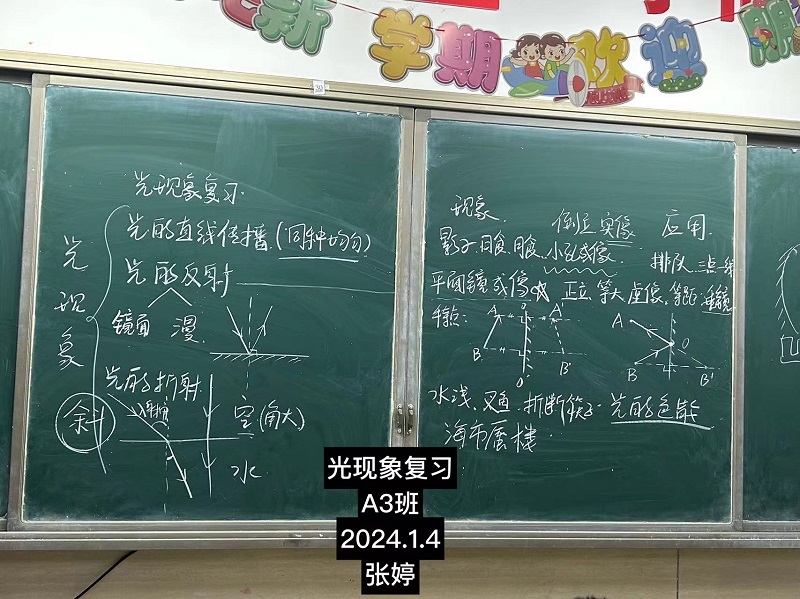 新 学 期 欢 迎
光现象复习
光的直线传播(同种均匀)
光的反射
镜面 漫
光的折射
光现象
斜
空(角大)
水
现象 倒立实像 应用
影子、日食、月食、小孔成像
排队、三点一线
平面镜成像 正立 等大 虚像、等距、
特点: A O A'
B B'
O'
A
O
B B'
水浅、叉鱼、折断筷子 光的色散
海市蜃楼
光现象复习
A3班
2024.1.4
张婷